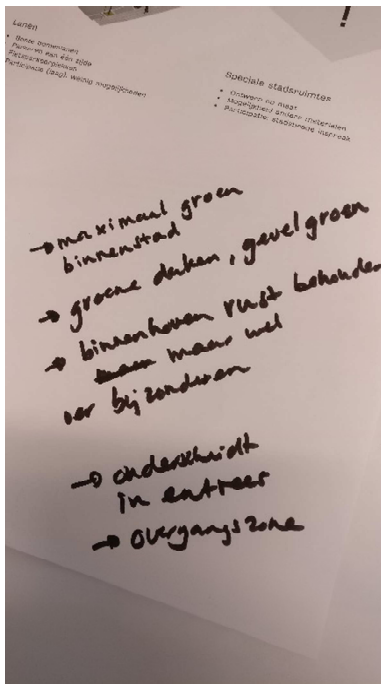 Lanen
Parkeren aan één zijde
Fietsparkeerplekken
Participatie (laag), weinig mogelijkheden
!
Speciale stadsruimtes
• Ontwerp op maat
• Mogelijkheid andere materialen
• Participatie: stadsbrede inspraak
→ maximaal groen
binnenstad
→ groene daken, gevelgroen
→ binnenhoven rust behouden
maar wel
bijzonderen
→ onderscheidt
in entrees
→ overgangszone